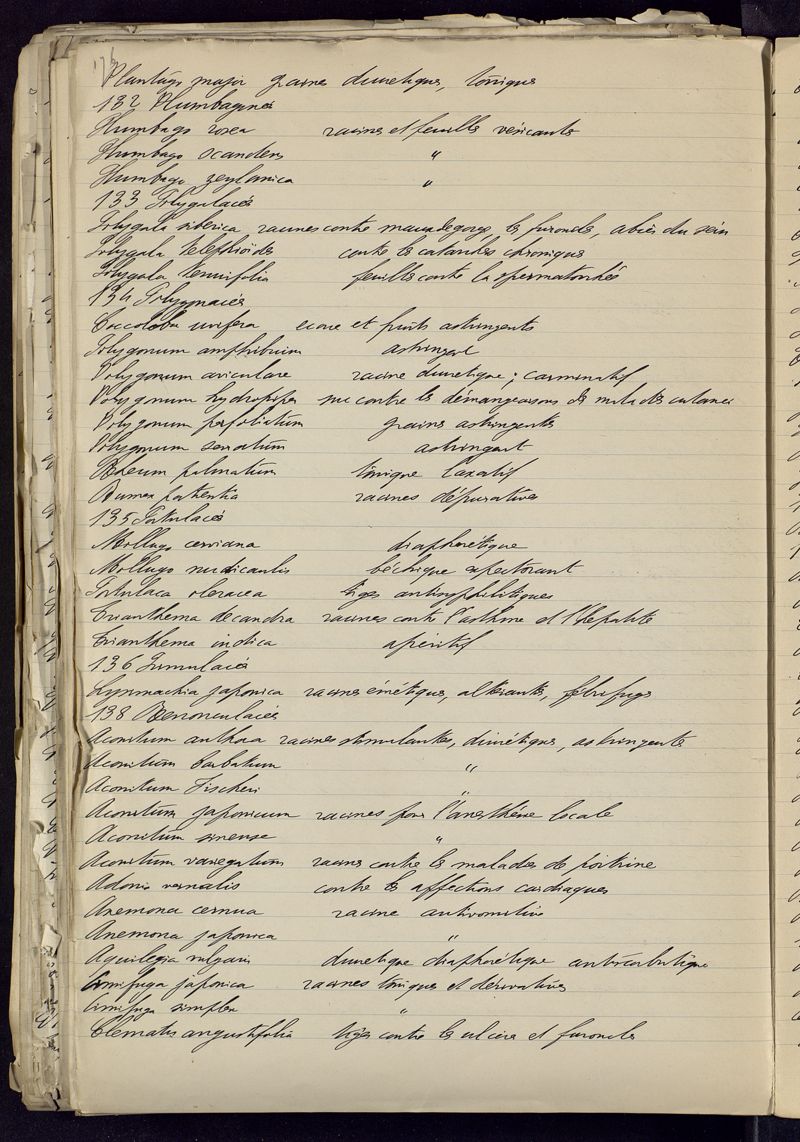 176
Plantago major graines diuretiques, toniques
132 Plumbaginés
Plumbago rosea racines et feuilles vésicants
Plumbago scandens "
Plumbago zeylanica "
133 Polygalacés
Polygala siberica, racines contre maux de gorge, les furoncles, abcès du sein
Polygala telephioïdes contre les catarrhes chroniques
Polygala tenuifolia feuilles contre la spermatorrhée
134 Polygonacés
Coccoloba uvifera ecorce et fruits astringents
Polygonum amphibium astringent
Polygonum aviculare racine diuretique; carminatif
Polygonum hydropiper suc contre les démangeaisons des maladies cutanées
Polygonum perfoliatum graines astringentes
Polygonum serratum astringent
Rheum palmatum tonique laxatif
Rumex patientia racines dépuratives
135 Portulacés
Mollugo cerviana diaphorétique
Mollugo nudicaulis béchique expectorant
Portulaca oleracea tiges antisyphilitiques
Trianthema decandra racines contre l'asthme et l'hépatite
Trianthema indica apéritif
136 Primulacés
Lysimachia japonica racines émétiques, altérants, fébrifuges
138 Renonculacés
Aconitum anthora racines stimulantes, diurétiques, astringents
Aconitum barbatum "
Aconitum Fischeri "
Aconitum japonicum racines pour l'anesthésie locale
Aconitum sinense "
Aconitum variegatum racines contre les maladies de poitrine
Adonis vernalis contre les affections cardiaques
Anemona cernua racine antivomitive
Anemona japonica "
Aquilegia vulgaris diuretique diaphorétique antiscorbutique
Cimifuga japonica racines toniques et dérivatives
Cimifuga simplex "
Clematis angustifolia tiges contre les ulcères et furoncles